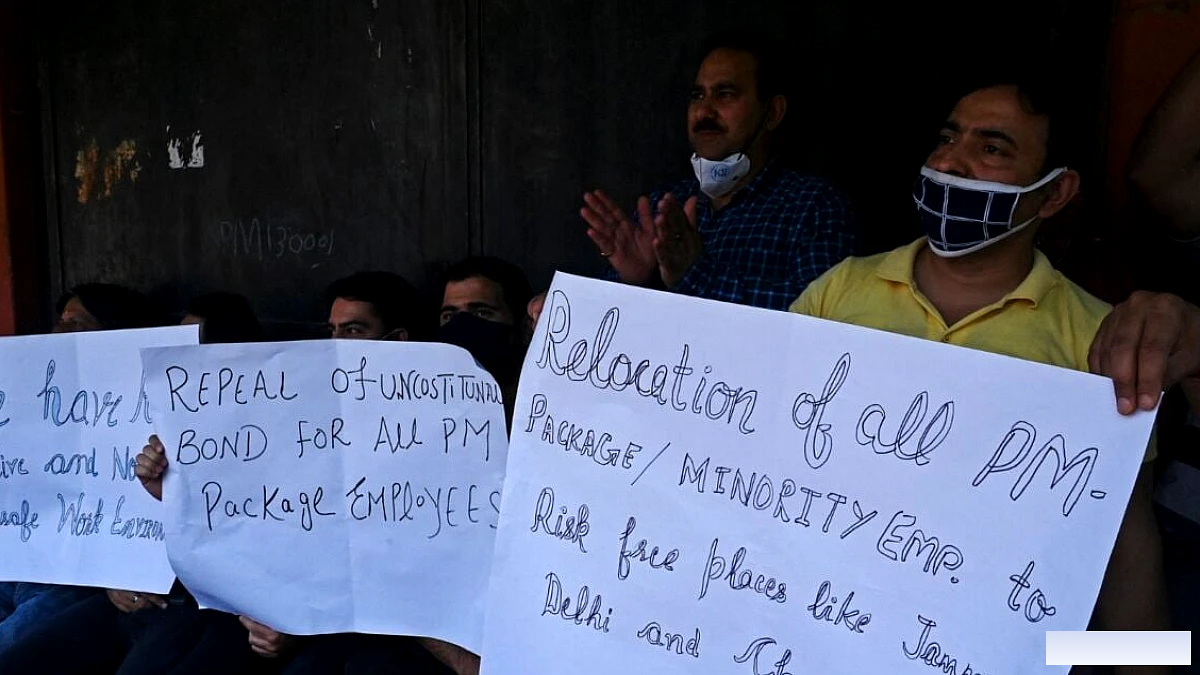 have
ive and No
safe Work Environ
REPEAL Of UNCOSTITUNAL
BOND FOR All PM
Package EMPlOYEES
Relocation of all PM-
PACKAGE/MINORITY EMP. to
Risk free places like Jammu
Delhi and Ch
PM130001